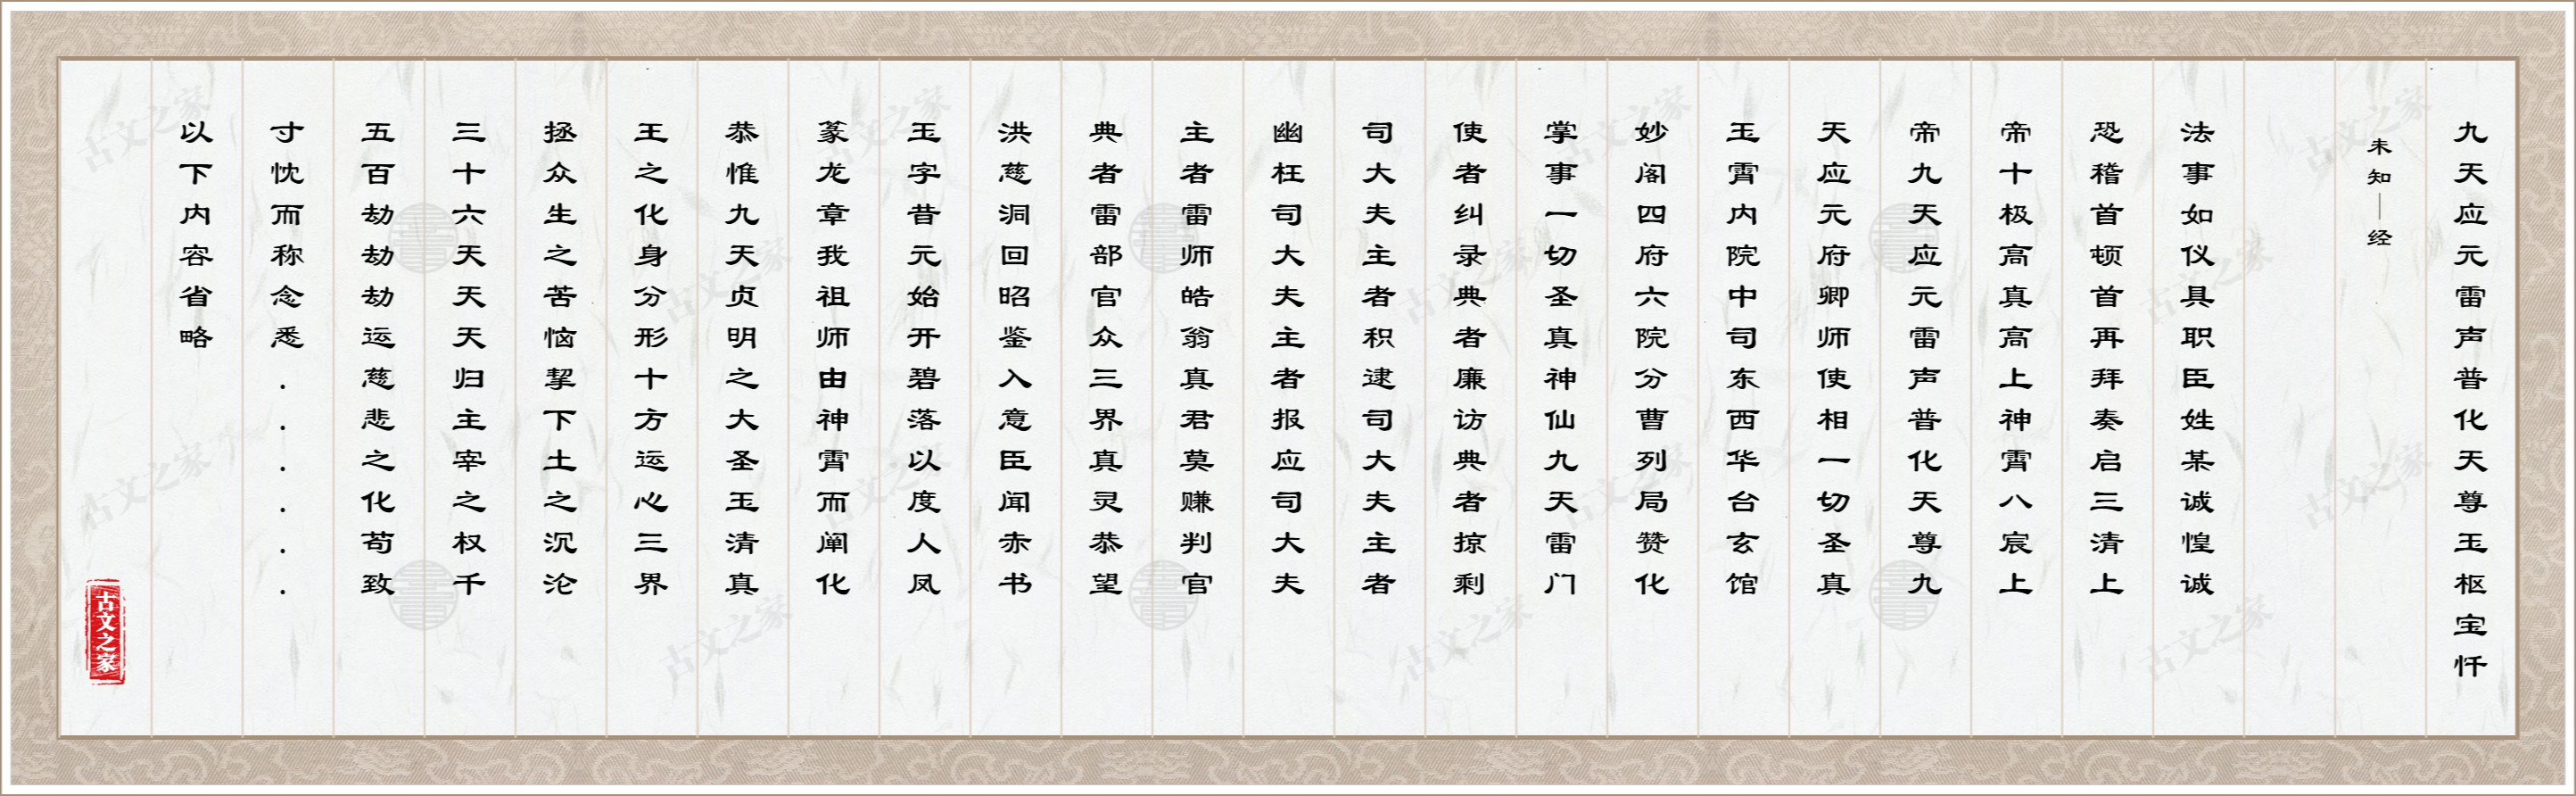 九天应元雷声普化天尊玉枢宝忏
未知｜经
法事如仪具职臣姓某诚惶诚
恐稽首顿首再拜奏启三清上
帝十极高真高上神霄八宸上
帝九天应元雷声普化天尊九
天应元府卿师使相一切圣真
玉霄内院中司东西华台玄馆
妙阁四府六院分曹列局赞化
掌事一切圣真神仙九天雷门
使者纠录典者廉访典者掠剩
司大夫主者积逮司大夫主者
幽枉司大夫主者报应司大夫
主者雷师皓翁真君莫赚判官
典者雷部官众三界真灵恭望
洪慈洞回昭鉴入意臣闻赤书
玉字昔元始开碧落以度人凤
篆龙章我祖师由神霄而阐化
恭惟九天贞明之大圣玉清真
王之化身分形十方运心三界
拯众生之苦恼挈下土之沉沦
三十六天天天归主宰之权千
五百劫劫劫运慈悲之化苟致
寸忱而称念悉......
以下内容省略
古文之家